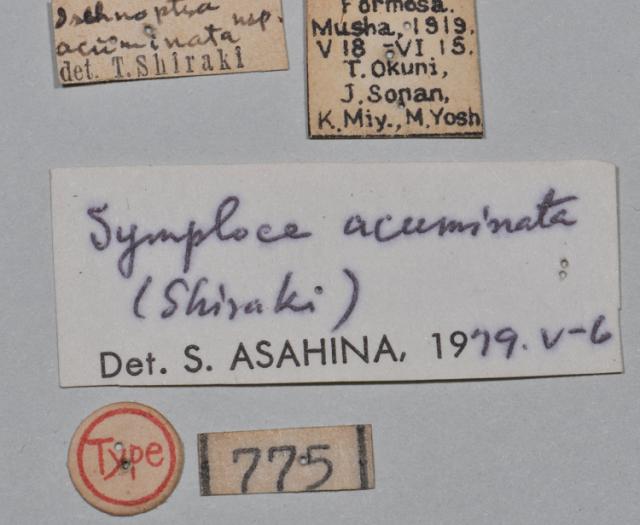 Ischnoptera nsp.
acuminata
det. T. Shiraki
Formosa.
Musha, 1919.
V 18 -VI 15.
T. Okuni,
J. Sonan,
K. Miy., M. Yosh
Symploce acuminata
(Shiraki)
Det. S. ASAHINA, 1979. V-6
Type
775